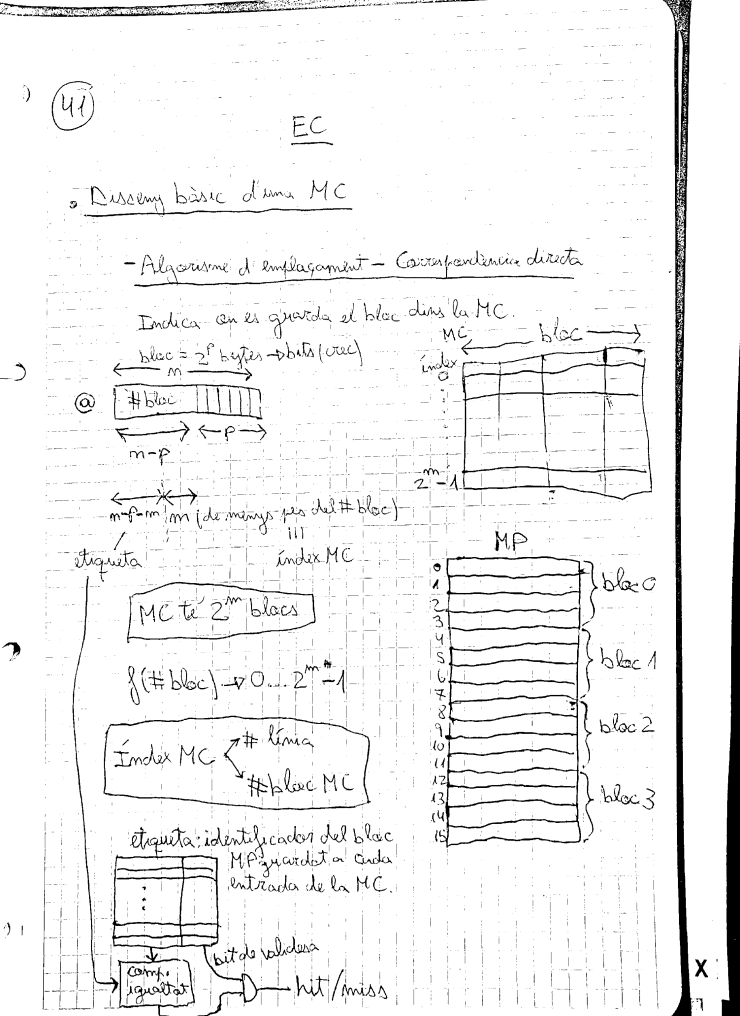 41
EC
• Disseny bàsic d'una MC
- Algorisme d'emplaçament - Correspondència directa
Indica on es guarda el bloc dins la MC.
bloc = 2^p bytes → bits (crec)
n
@ #bloc
n-p p
n-p-m m (de menys pes del #bloc)
etiqueta
índex MC
MC bloc
índex
0
2^m-1
MC té 2^m blocs
f(#bloc) → 0...2^m-1
Índex MC → # línia
→ #bloc MC
MP
0
1
2
3
bloc 0
4
5
6
7
bloc 1
8
9
10
11
bloc 2
12
13
14
15
bloc 3
etiqueta: identificador del bloc
MP guardat a cada
entrada de la MC.
bit de validesa
comp.
igualtat
hit/miss
X